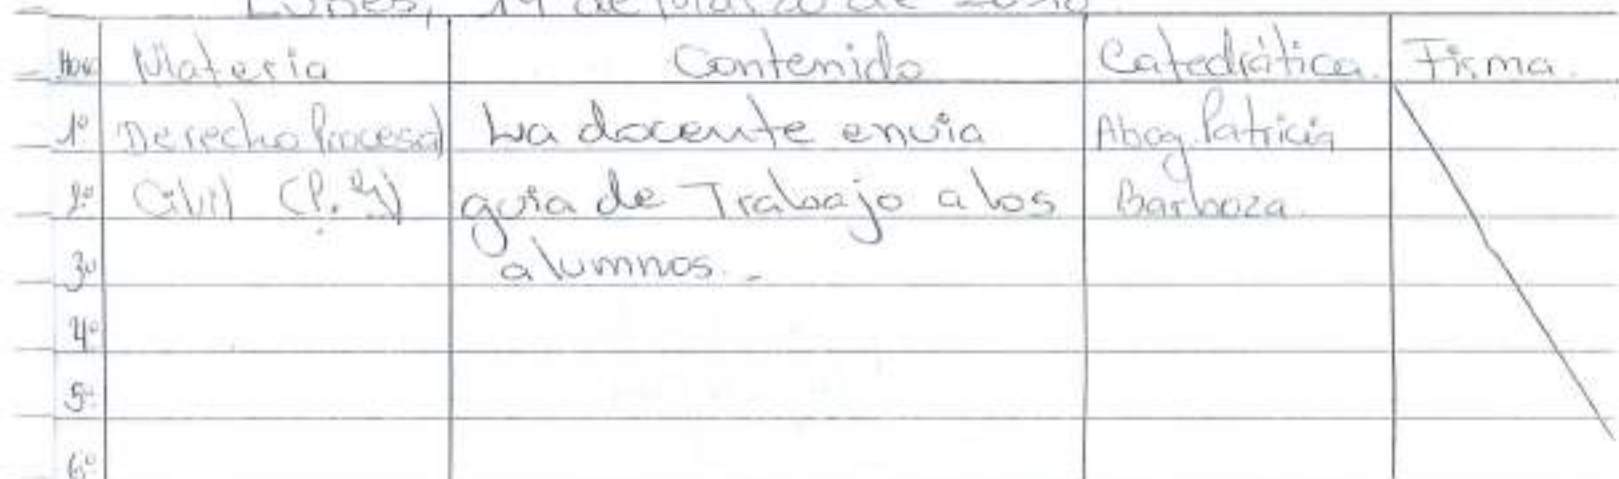 Lunes, 19 de Marzo de
Hora Materia Contenido Catedrática. Firma.
1º Derecho Procesal La docente envia Abog. Patricia
2º Civil guia de Trabajo a los Barboza.
3º alumnos.-
4º
5º
6º